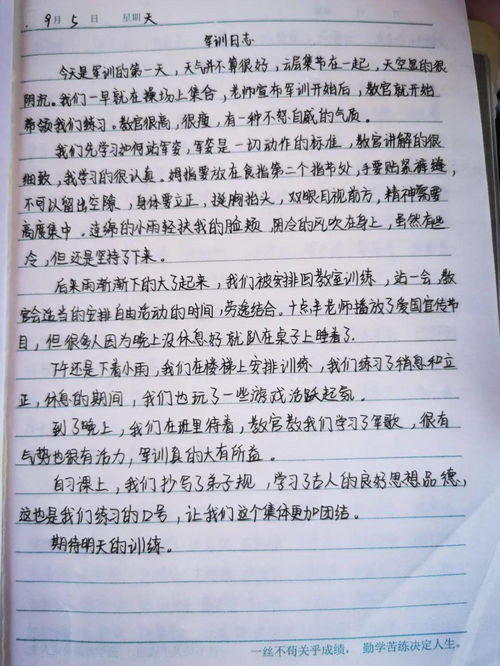 9月5日 星期天
军训日志
今天是军训的第一天，天气并不算很好，云层集节在一起，天空显的很
阴沉。我们一早就在操场上集合，老师宣布军训开始后，教官就开始
带领我们练习。教官很高，很瘦，有一种不怒自威的气质。
我们先学习如何站军姿，军姿是一切动作的标准，教官讲解的很
细致，我学习的很认真。拇指要放在食指第二个指节处，手要贴紧裤缝，
不可以留出空隙，身体要立正，挺胸抬头，双眼目视前方，精神需要
高度集中。连绵的小雨轻扶我的脸颊 阴冷的风吹在身上，虽然有些
冷，但还是坚持了下来。
后来雨渐渐下的大了起来，我们被安排回教室训练，站一会，教
官会适当的安排自由活动的时间，劳逸结合。十点半老师播放了爱国宣传节
目，但很多人因为晚上没休息好就趴在桌子上睡着了.
下午还是下着小雨，我们在楼梯上安排训练，我们练习了稍息和立
正，休息的期间，我们也玩了一些游戏活跃起氛。
到了晚上，我们在班里待着，教官教我们学习了军歌，很有
气势也很有活力，军训真的大有所益。
自习课上，我们抄写了弟子规，学习了古人的良好思想品德，
这也是我们练习的口号，让我们这个集体更加团结。
期待明天的训练。
一丝不苟关乎成绩， 勤学苦练决定人生。